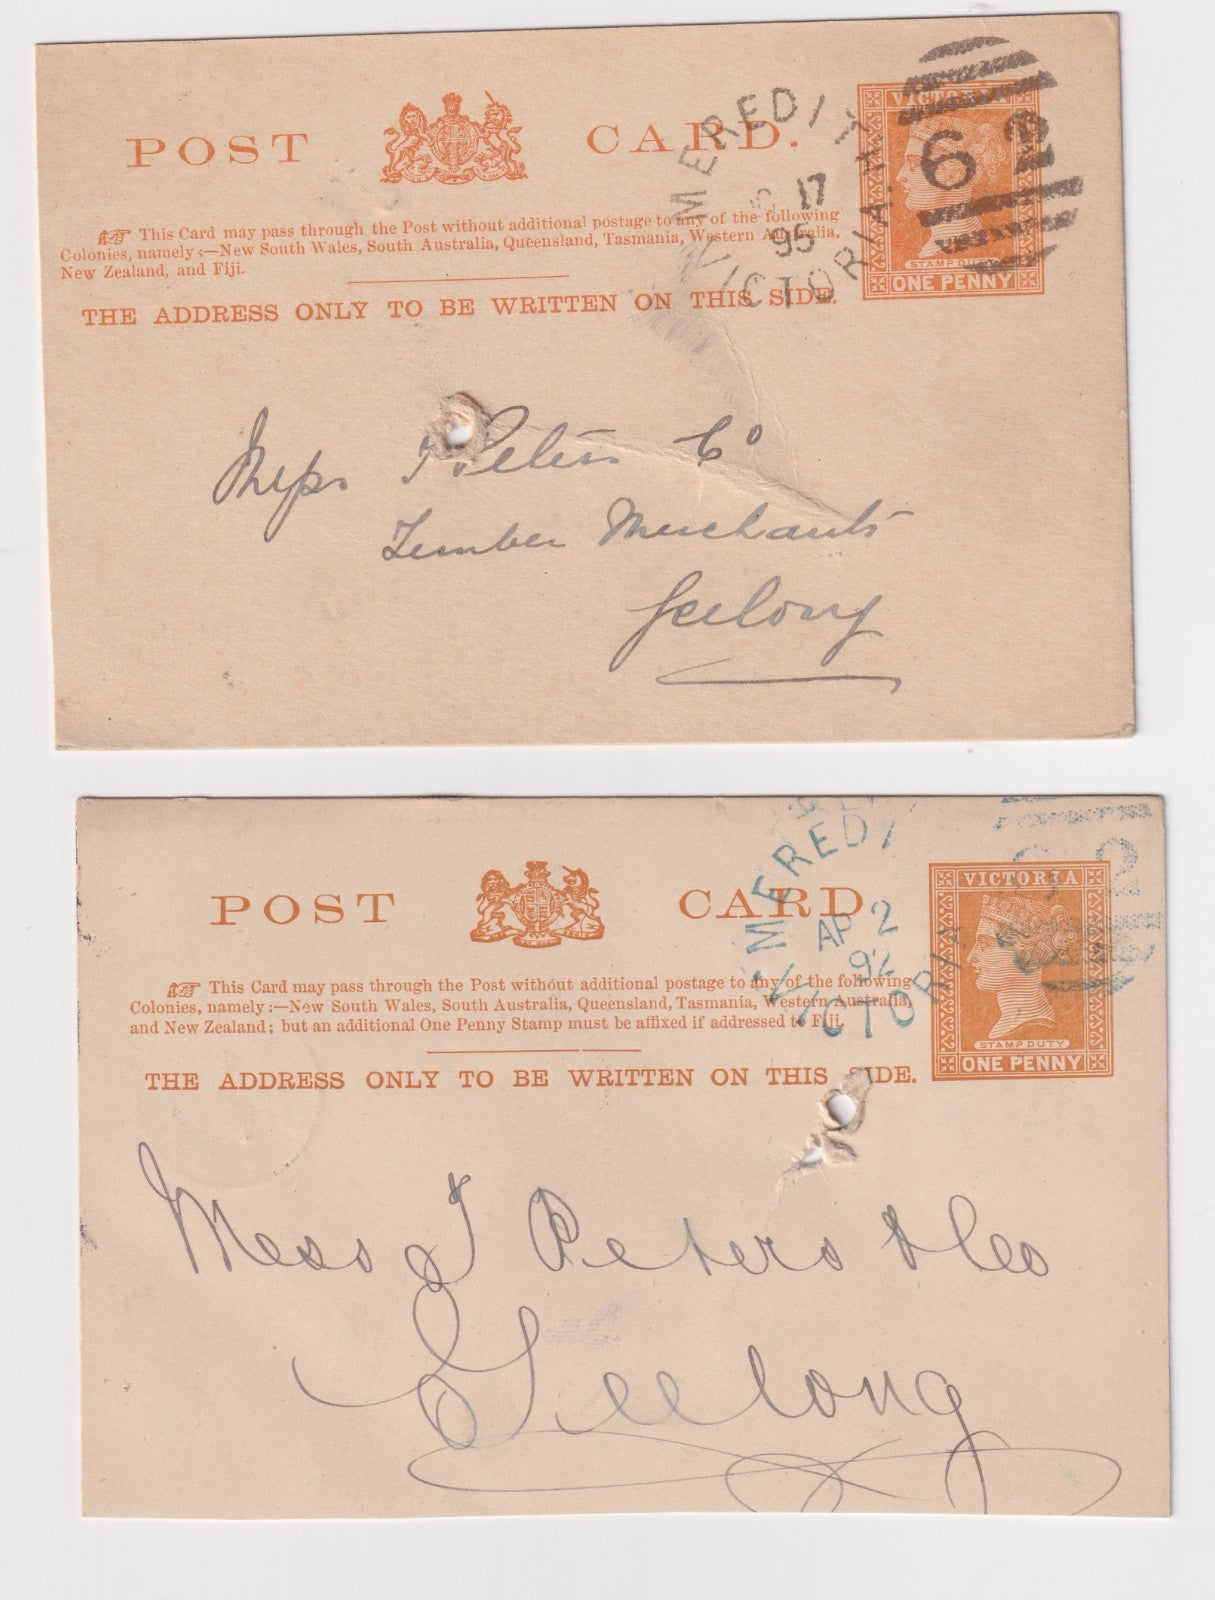 POST CARD.
This Card may pass through the Post without additional postage to any of the following
Colonies, namely:—New South Wales, South Australia, Queensland, Tasmania, Western Australia,
New Zealand, and Fiji.
THE ADDRESS ONLY TO BE WRITTEN ON THIS SIDE.
MEREDITH
17
95
VICTORIA
62
VICTORIA
STAMP DUTY
ONE PENNY
Messrs J Peters Co
Timber Merchants
Geelong
POST CARD.
This Card may pass through the Post without additional postage to any of the following
Colonies, namely:—New South Wales, South Australia, Queensland, Tasmania, Western Australia,
and New Zealand; but an additional One Penny Stamp must be affixed if addressed to Fiji.
THE ADDRESS ONLY TO BE WRITTEN ON THIS SIDE.
MEREDI
AP 2
92
VICTORIA
62
VICTORIA
STAMP DUTY
ONE PENNY
Mess J Peters & Co
Geelong